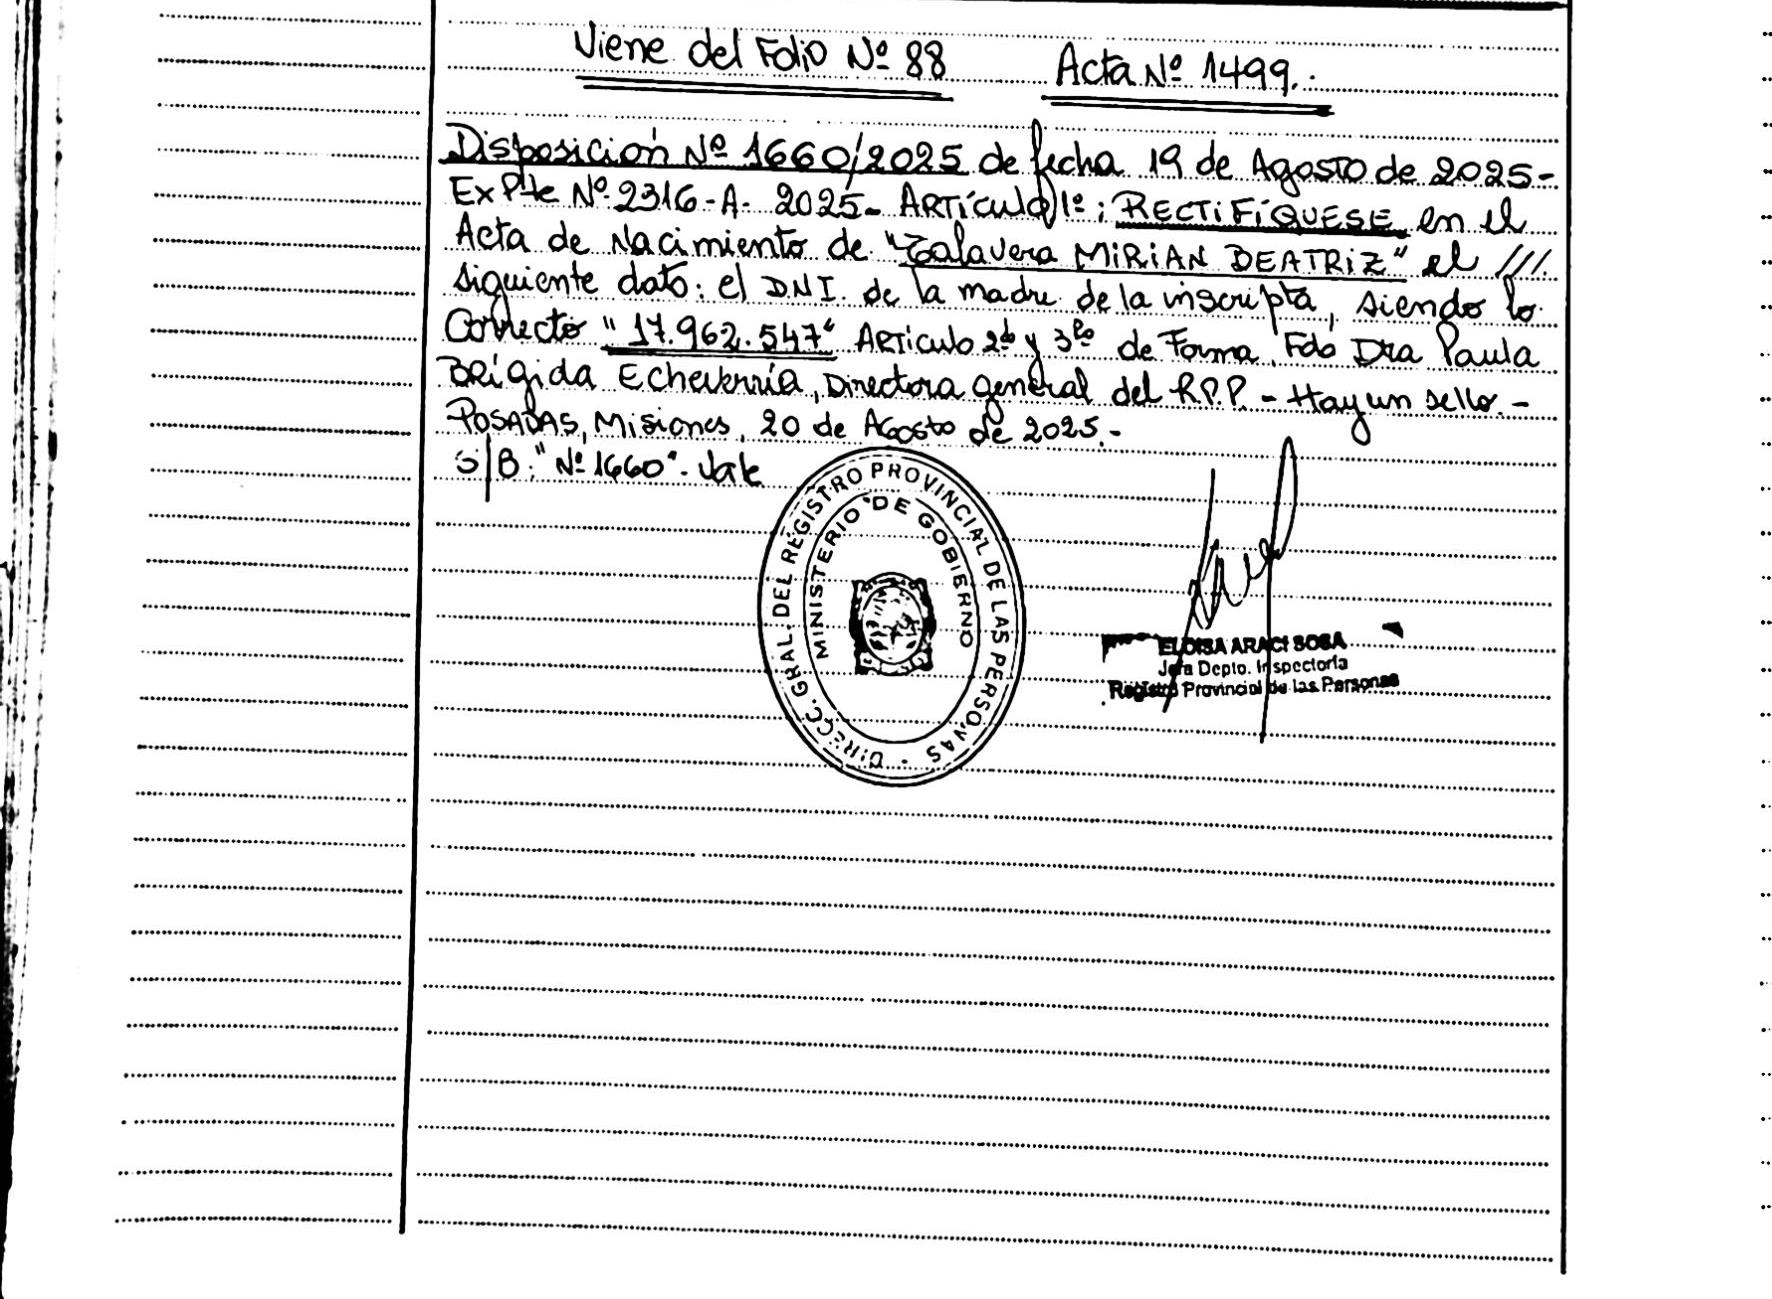 Viene del Folio Nº 88 Acta Nº 1499.
Disposición Nº 1660/2025 de fecha 19 de Agosto de 2025-
ExPte Nº 2316-A- 2025- ARTículo 1º: RECTIFÍQUESE en el
Acta de Nacimiento de "Talavera MIRIAN BEATRIZ" el ///
siguiente dato: el DNI. de la madre de la inscripta, siendo lo
Correcto "17.962.547" ARTículo 2do y 3ro de Forma. Fdo Dra Paula
BRígida Echeverría, Directora general del R.P.P. - Hay un sello.-
POSADAS, Misiones, 20 de Agosto de 2025.-
S/B: "Nº 1660". Vale
DIRECC. GRAL. DEL REGISTRO PROVINCIAL DE LAS PERSONAS
MINISTERIO DE GOBIERNO
ELOISA ARACI SOSA
Jefa Depto. Inspectoría
Registro Provincial de las Personas